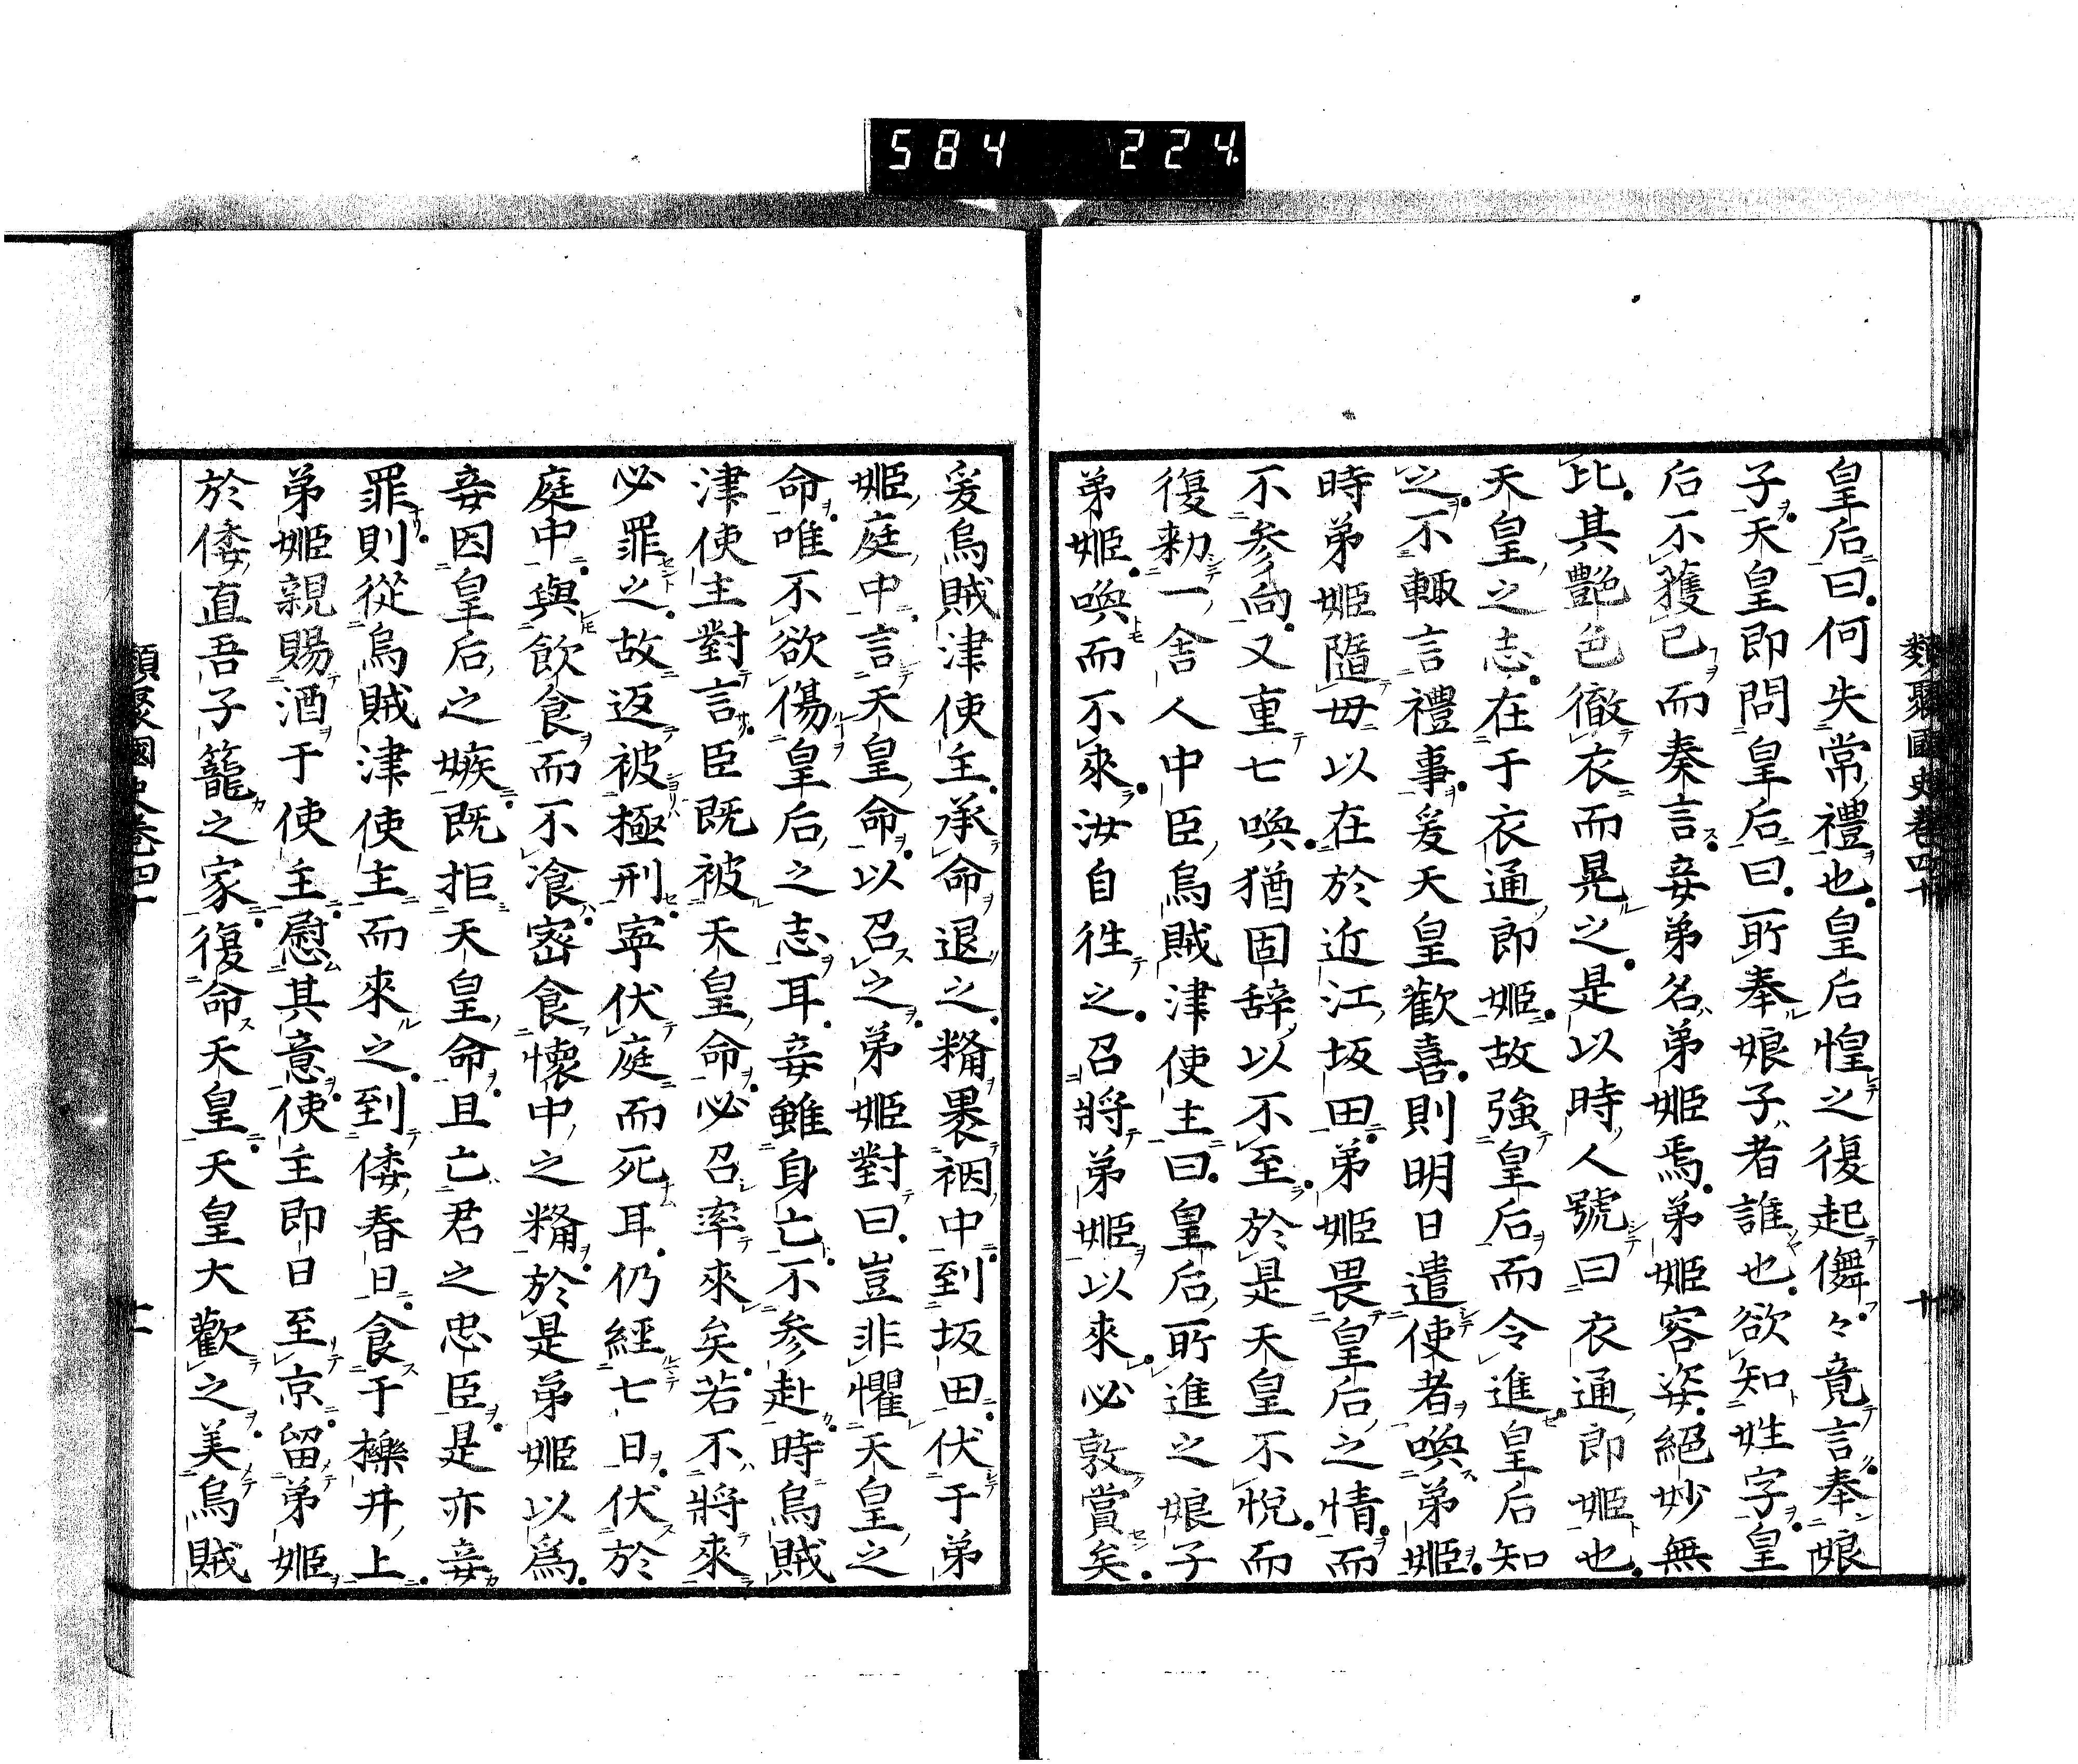 584 224
類聚國史卷四十
十
皇后曰何失常禮也皇后惶之復起儛々竟言奉娘
子天皇即問皇后曰所奉娘子者誰也欲知姓字皇
后不獲已而奏言妾弟名弟姬焉弟姬容姿絕妙無
比其艷色徹衣而晃之是以時人號曰衣通郎姬也
天皇之志在于衣通郎姬故強皇后而令進皇后知
之不輙言禮事爰天皇歡喜則明日遣使者喚弟姬
時弟姬隨母以在於近江坂田弟姬畏皇后之情而
不参向又重七喚猶固辞以不至於是天皇不悅而
復勅一舍人中臣烏賊津使主曰皇后所進之娘子
弟姬喚而不來汝自徃之召將弟姬以來必敦賞矣
爰烏賊津使主承命退之糒褁裀中到坂田伏于弟
姬庭中言天皇命以召之弟姬對曰豈非懼天皇之
命唯不欲傷皇后之志耳妾雖身亡不参赴時烏賊
津使主對言臣既被天皇命必召率來矣若不將來
必罪之故返被極刑寧伏庭而死耳仍經七日伏於
庭中與飲食而不飡密食懷中之糒於是弟姬以爲
妾因皇后之嫉既拒天皇命且亡君之忠臣是亦妾
罪則從烏賊津使主而來之到倭春日食于櫟井上
弟姬親賜酒于使主慰其意使主即日至京留弟姬
於倭直吾子籠之家復命天皇天皇大歡之美烏賊
類聚國史卷四十
十一